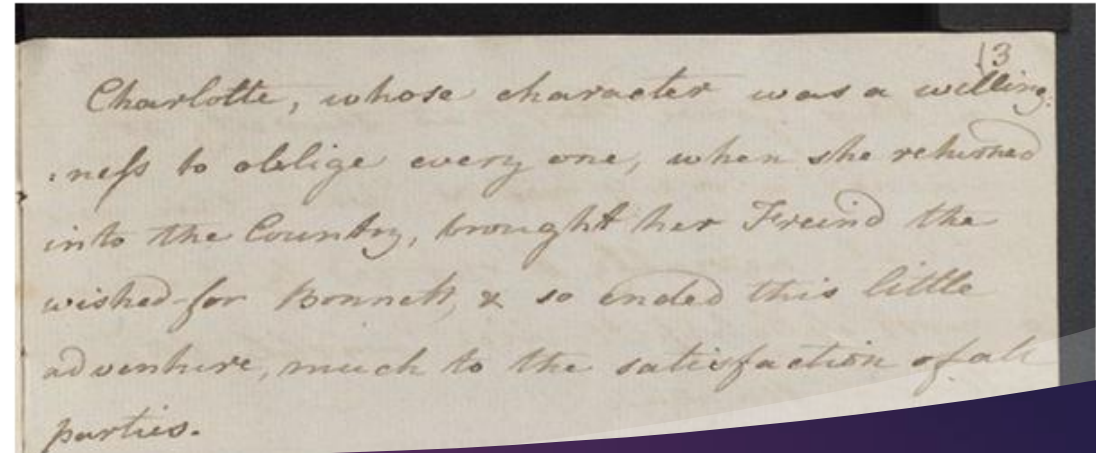 (3
Charlotte, whose character was a willing:
:ness to oblige every one, when she returned
into the Country, brought her Freind the
wished-for Bonnett, & so ended this little
adventure, much to the satisfaction of all
parties.